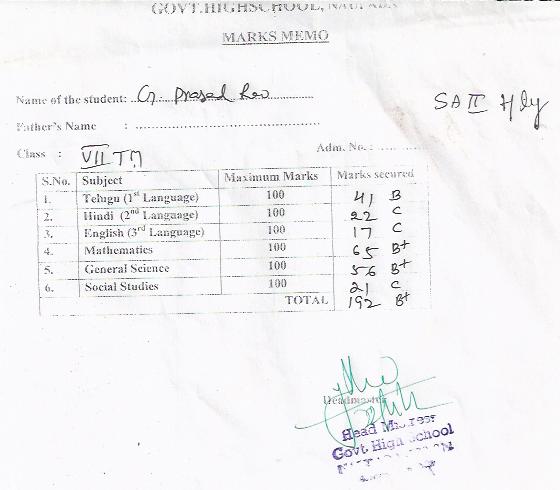 GOVT.HIGHSCHOOL, NAUPADA
MARKS MEMO
Name of the student: G. Prasad Rao
SA II Hly
Father's Name :
Class : VII TM
Adm. No. :
S.No. Subject Maximum Marks Marks secured
1. Telugu (1st Language) 100 41 B
2. Hindi (2nd Language) 100 22 C
3. English (3rd Language) 100 17 C
4. Mathematics 100 65 B+
5. General Science 100 56 B+
6. Social Studies 100 21 C
TOTAL 192 B+
Headmaster
Head Mistress
Govt High School